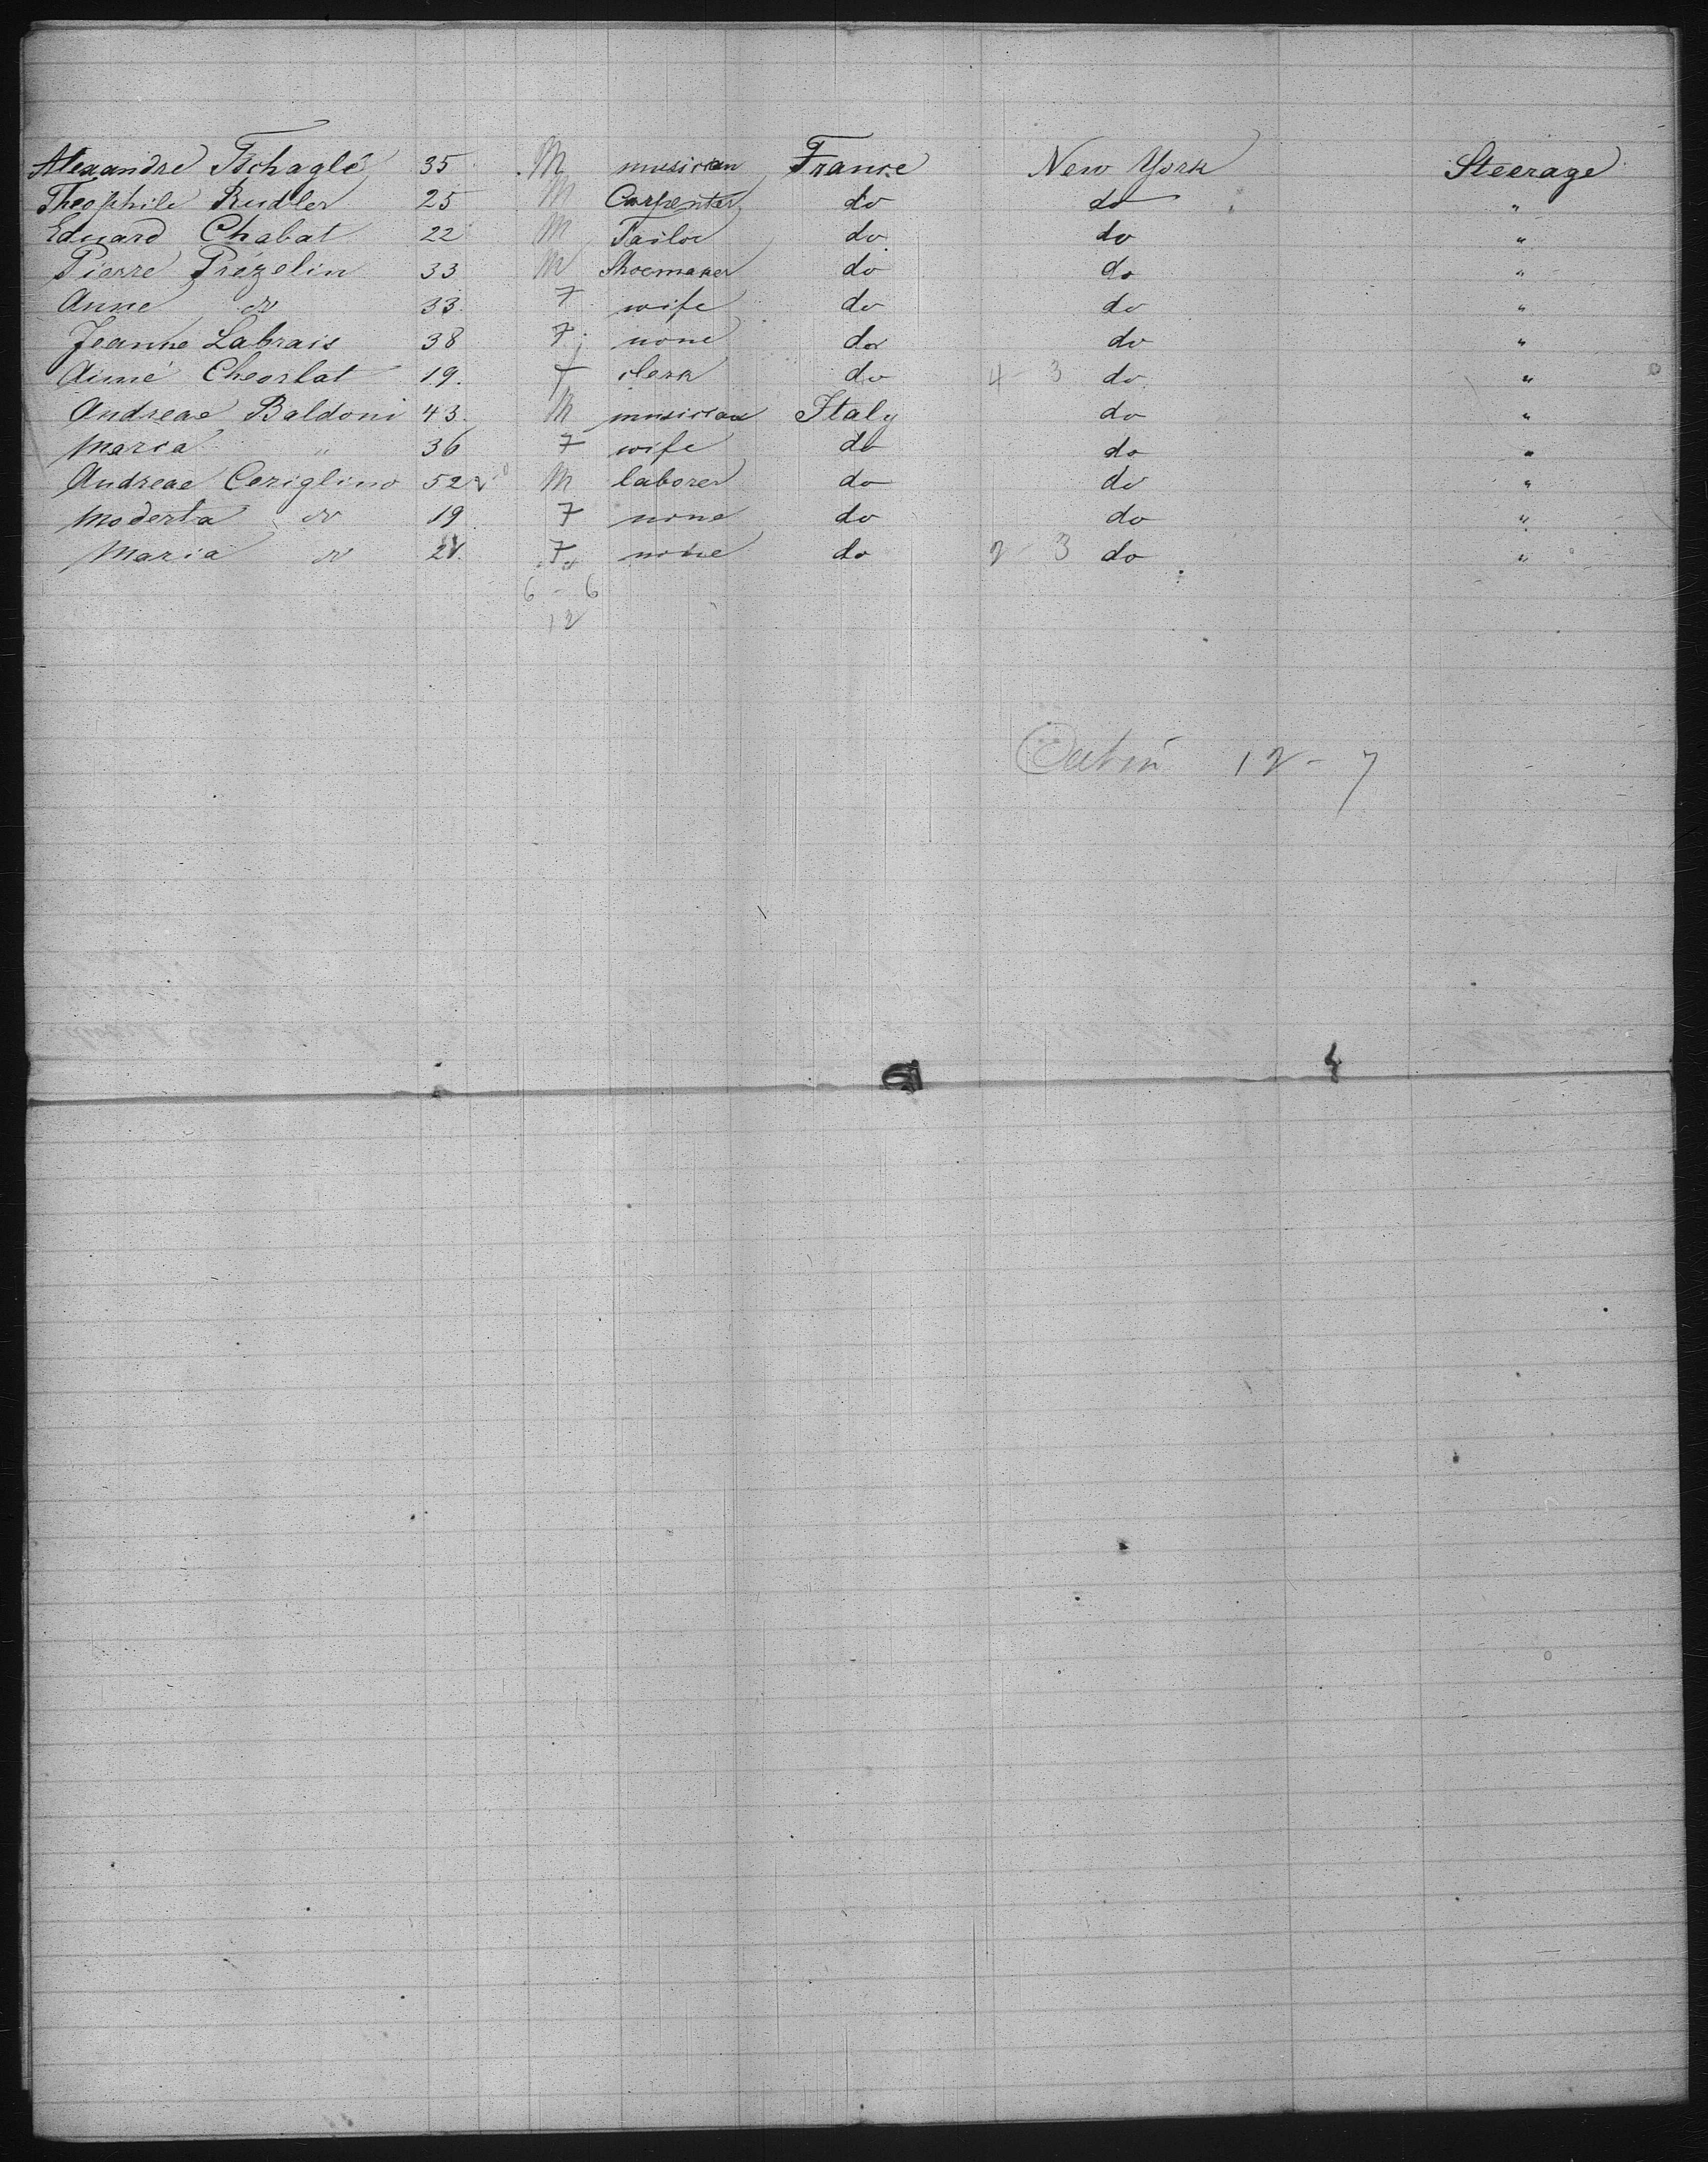 Alexandre Tschaglé 35 M musician France New York Steerage
Theophile Rudler 25 M Carpenter do do "
Eduard Chabat 22 M Tailor do do "
Pierre Prézelin 33 M Shoemaker do do "
Anne do 33 F wife do do "
Jeanne Labrais 38 F none do do "
Aimé Cheorlat 19. F clerk do 4 - 3 do "
Andreae Baldoni 43. M musician Italy do "
Maria " 36 F wife do do "
Andreae Ceriglino 52 M laborer do do "
Moderta do 19 F none do do "
Maria do 21. F none do 2 - 3 do "
6 - 6
12
Cabin 12 - 7